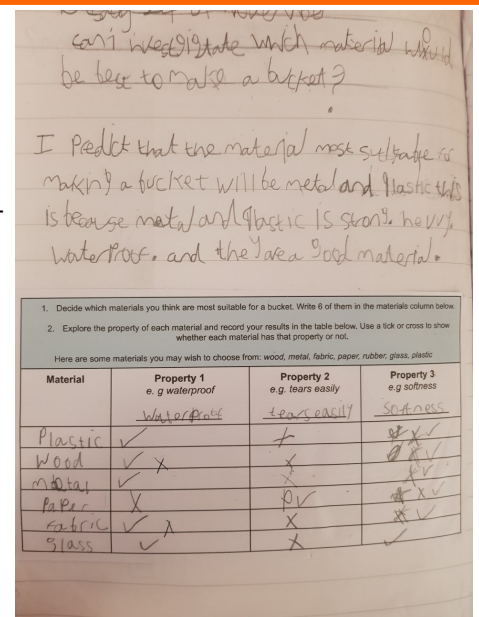 can i investigtate which material would
be best to make a bucket?
I Predict that the material most suitable for
making a bucket will be metal and Plastic this
is because metal and plastic is strong. hevvy,
waterProof. and they are a good material.
1. Decide which materials you think are most suitable for a bucket. Write 6 of them in the materials column below.
2. Explore the property of each material and record your results in the table below. Use a tick or cross to show
whether each material has that property or not.
Here are some materials you may wish to choose from: wood, metal, fabric, paper, rubber, glass, plastic
Material Property 1 Property 2 Property 3
e. g waterproof e.g. tears easily e.g softness
WaterProof tears easily softness
Plastic ✓ X ✓
Wood ✓ X X X ✓
metal ✓ X X ✓
PaPer X ✓ X ✓
Fabric ✓ X X X ✓
glass ✓ X ✓